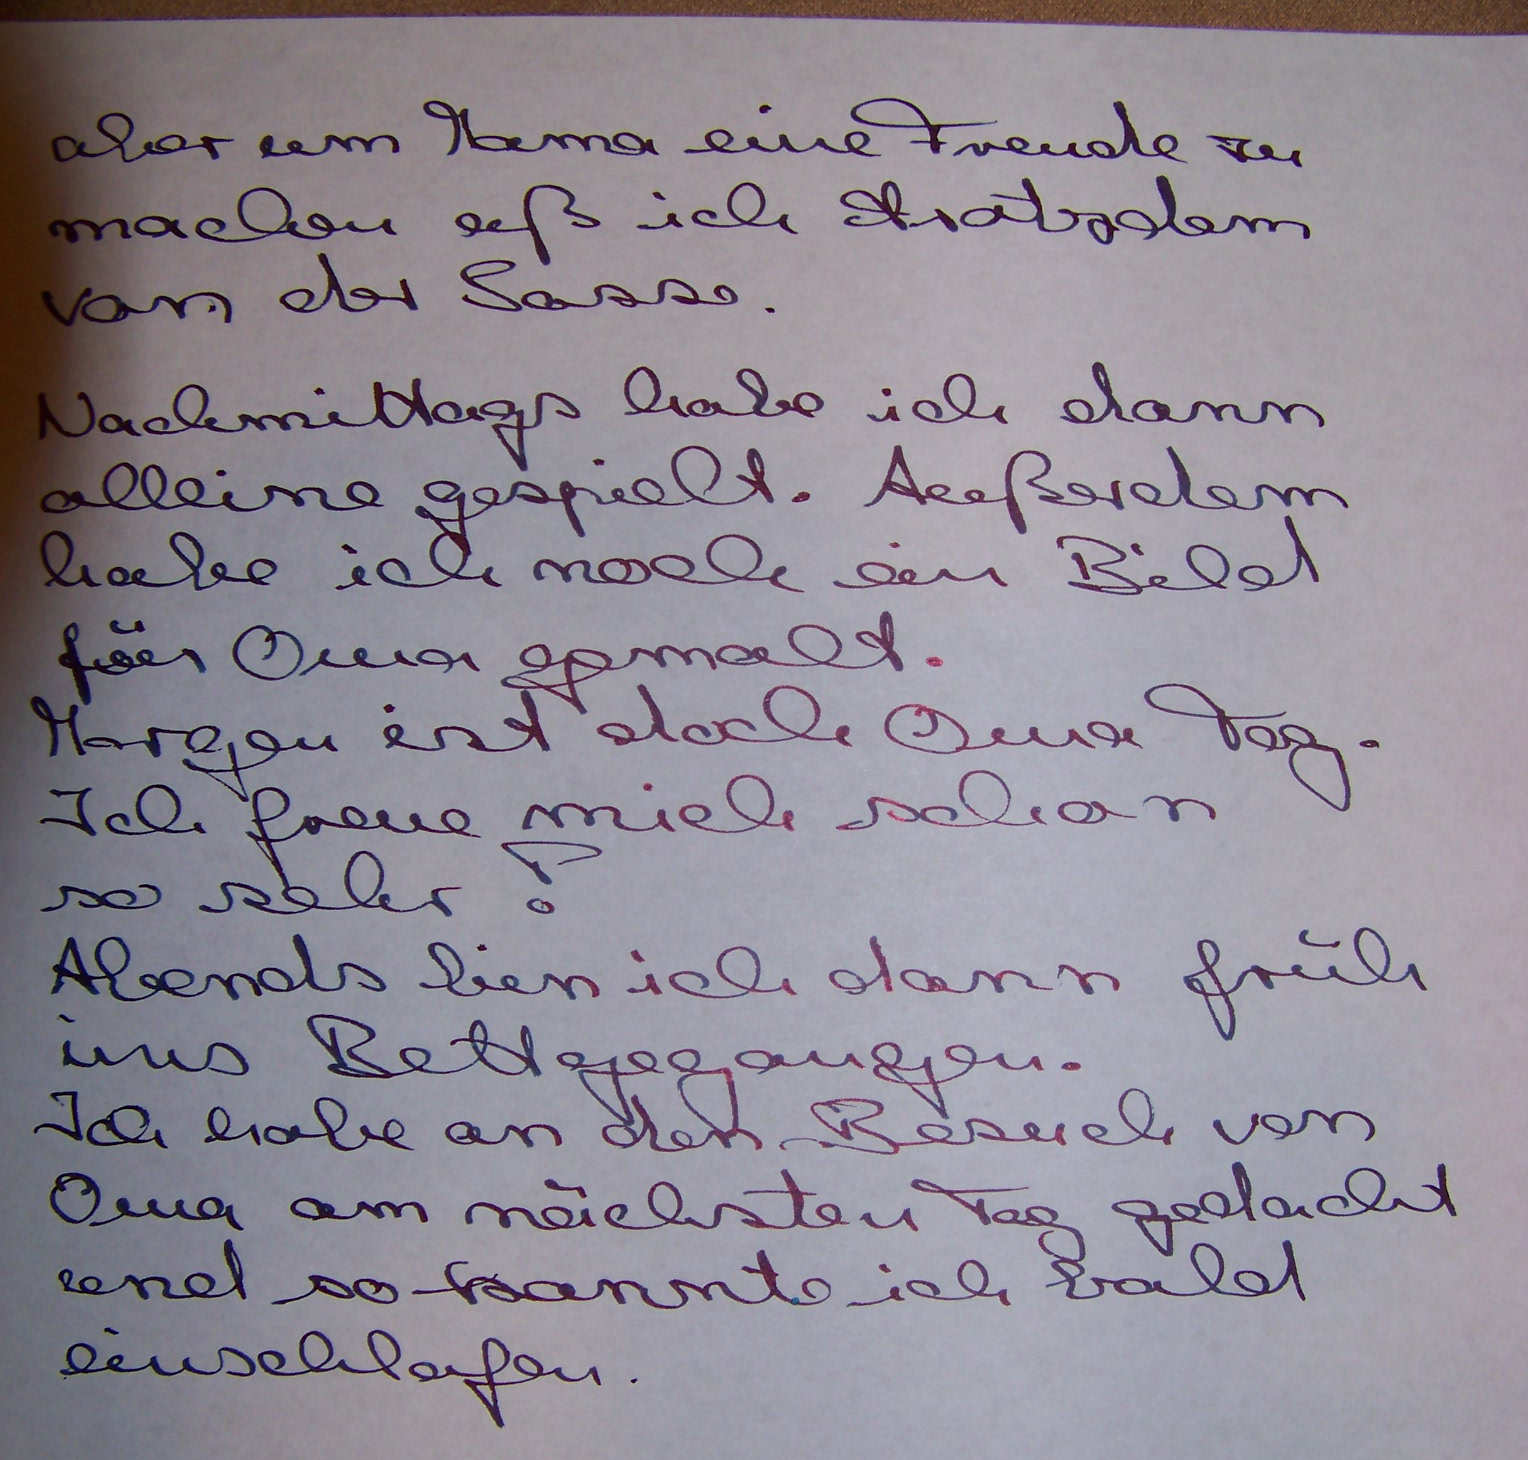 aber um Mama eine Freude zu
machen aß ich trotzdem
von der Sosse.
Nachmittags habe ich dann
alleine gespielt. Außerdem
habe ich noch ein Bild
für Oma gemalt.
Morgen ist doch Oma Tag.
Ich freue mich schon
so sehr!
Abends bin ich dann früh
ins Bett gegangen.
Ich habe an den Besuch von
Oma am nächsten Tag gedacht
und so konnte ich bald
einschlafen.